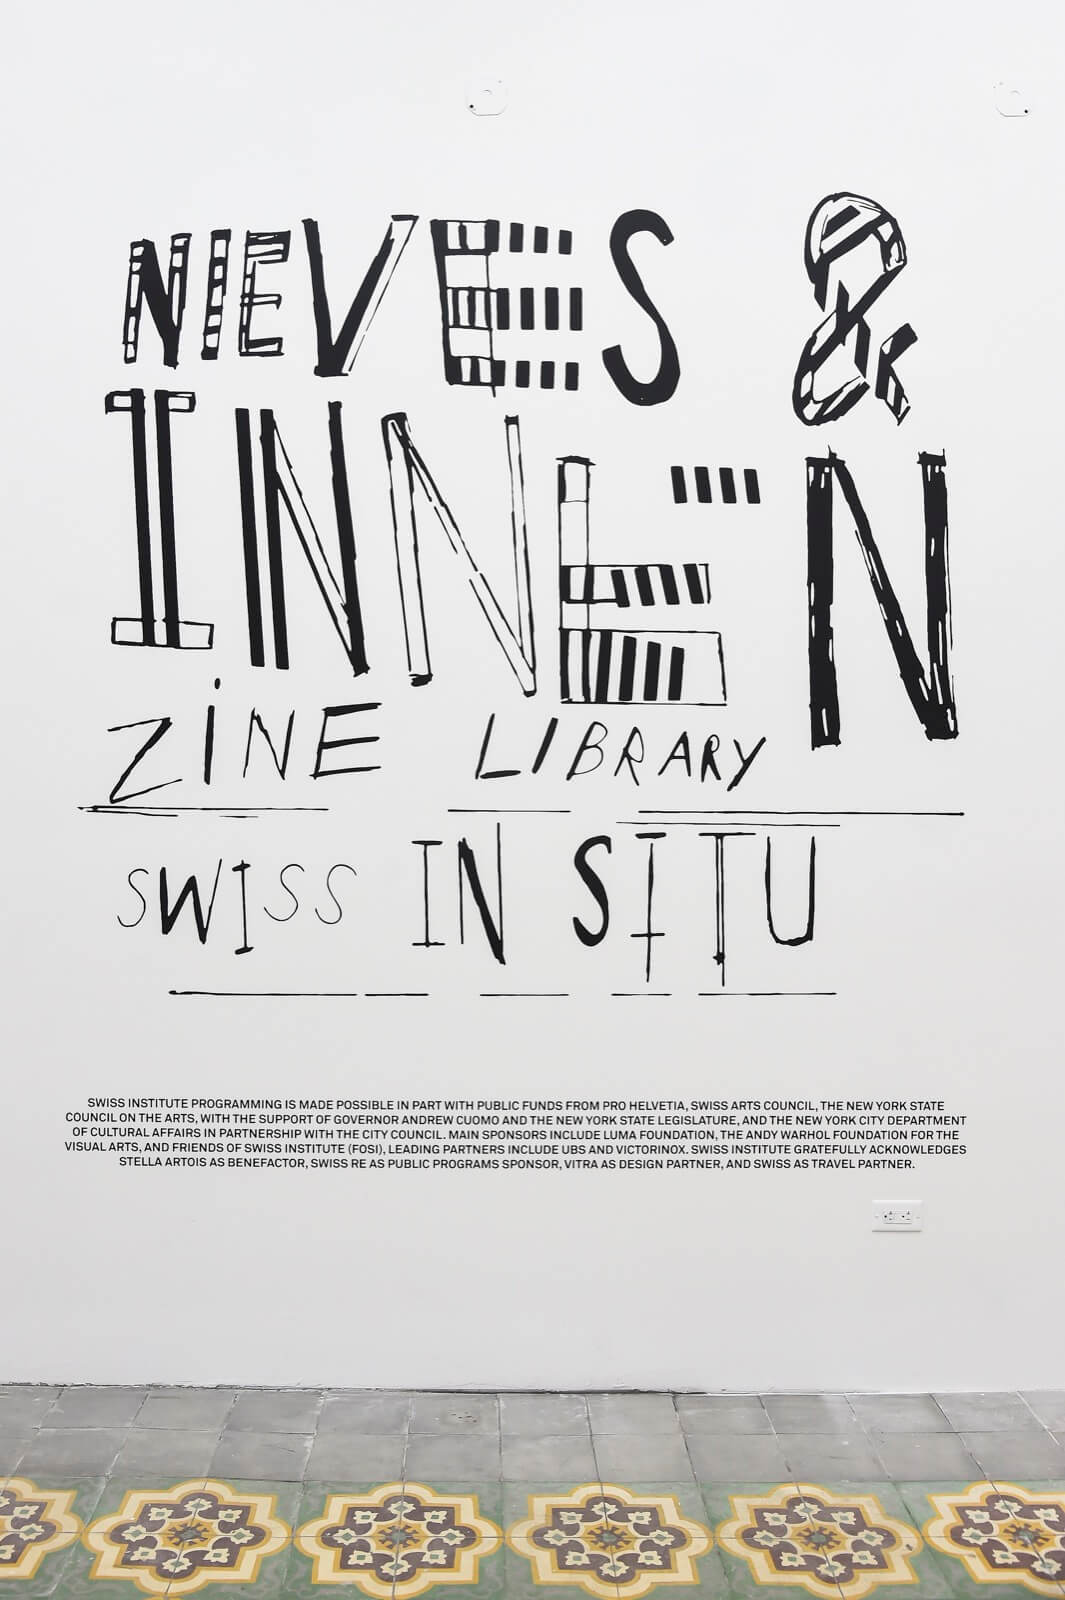 NIEVES &
INNEN
ZiNE LIBRARY
SWISS IN SITU
SWISS INSTITUTE PROGRAMMING IS MADE POSSIBLE IN PART WITH PUBLIC FUNDS FROM PRO HELVETIA, SWISS ARTS COUNCIL, THE NEW YORK STATE
COUNCIL ON THE ARTS, WITH THE SUPPORT OF GOVERNOR ANDREW CUOMO AND THE NEW YORK STATE LEGISLATURE, AND THE NEW YORK CITY DEPARTMENT
OF CULTURAL AFFAIRS IN PARTNERSHIP WITH THE CITY COUNCIL. MAIN SPONSORS INCLUDE LUMA FOUNDATION, THE ANDY WARHOL FOUNDATION FOR THE
VISUAL ARTS, AND FRIENDS OF SWISS INSTITUTE (FOSI), LEADING PARTNERS INCLUDE UBS AND VICTORINOX. SWISS INSTITUTE GRATEFULLY ACKNOWLEDGES
STELLA ARTOIS AS BENEFACTOR, SWISS RE AS PUBLIC PROGRAMS SPONSOR, VITRA AS DESIGN PARTNER, AND SWISS AS TRAVEL PARTNER.